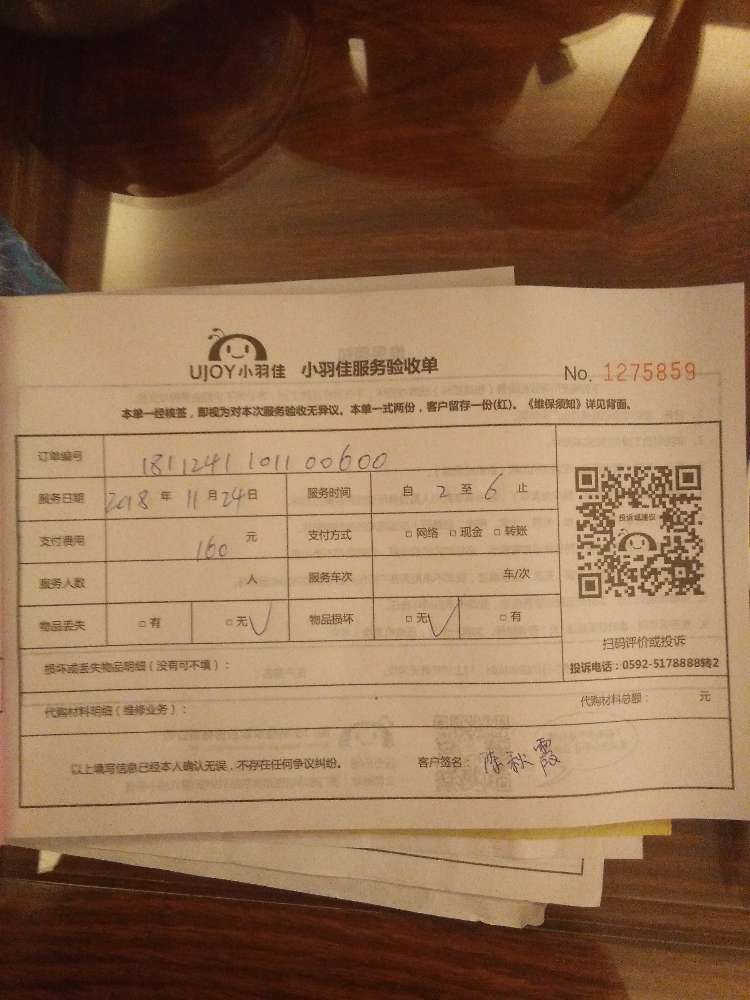 UJOY小羽佳 小羽佳服务验收单 No. 1275859
本单一经核签，即视为对本次服务验收无异议。本单一式两份，客户留存一份(红)。《维保须知》详见背面。
订单编号 1811241101100600
服务日期 2018 年 11 月 24 日 服务时间 自 2 至 6 止
支付费用 160 元 支付方式 □ 网络 □ 现金 □ 转账
服务人数 人 服务车次 车/次
物品丢失 □ 有 □ 无 √ 物品损坏 □ 无 √ □ 有
投诉或建议
扫码评价或投诉
投诉电话：0592-5178888转2
损坏或丢失物品明细（没有可不填）：
代购材料明细（维修业务）： 代购材料总额： 元
以上填写信息已经本人确认无误，不存在任何争议纠纷。 客户签名： 陈秋霞